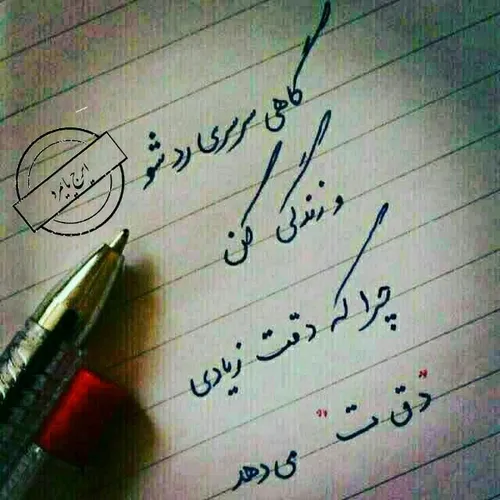 گاهی سرسری رد شو
و زندگی کن
چرا که دقت زیادی
"دق ت"
می دهد